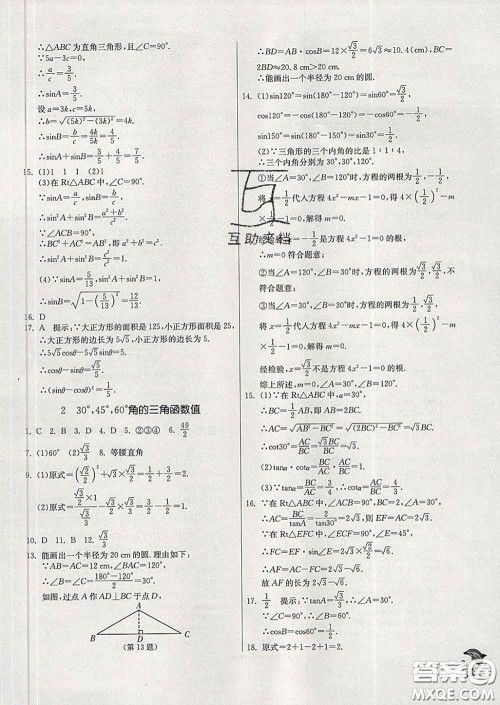 ∴△ABC为直角三角形,且∠C=90°.
∵5a-3c=0,
∴a/c=3/5.
∴sinA=a/c=3/5.
设a=3k,c=5k,
∴b=√((5k)²-(3k)²)=4k.
∴sinB=b/c=4k/5k=4/5.
∴sinA+sinB=3/5+4/5=7/5.
15. (1)1 (2)1
(3)在Rt△ABC中,∠C=90°,
∵sinA=a/c,sinB=b/c,
∴sin²A+sin²B=(a²+b²)/c².
∵∠C=90°.
∴BC²+AC²=AB²,即a²+b²=c².
∴sin²A+sin²B=1.
(4)∵sinA=5/13,sin²A+sin²B=1,
∴sinB=√(1-(5/13)²)=12/13.
16. D
17. A 提示:∵大正方形的面积是125,小正方形面积是25,
∴大正方形的边长为5√5,小正方形的边长为5.
∴5√5cosθ-5√5sinθ=5.
∴cosθ-sinθ=√5/5.
∴(sinθ-cosθ)²=1/5.
2 30°,45°,60°角的三角函数值
1. C 2. B 3. D 4. D 5. ②③④ 6. 49/2
7. (1)60° (2)√3/3 8. 等腰直角
9. (1)原式=(√2/2)²+√3×√3/2=1/2+3/2=2.
10. D 11. B 12. √3/3
13. 能画出一个半径为20 cm的圆. 理由如下:
∵∠BAC=120°,AB=AC=12,
∴∠B=∠C=(180°-120°)/2=30°.
如图,过点A作AD⊥BC于点D,
A
B D C
(第13题)
∴BD=AB·cosB=12×√3/2=6√3≈10.4(cm),BC=
2BD≈20.8 cm>20 cm.
∴能画出一个半径为20 cm的圆.
14. (1)sin120°=sin(180°-120°)=sin60°=√3/2,
cos120°=-cos(180°-120°)=-cos60°=-1/2,
sin150°=sin(180°-150°)=sin30°=1/2.
(2)∵三角形的三个内角的比是1:1:4,
∴三个内角分别为30°,30°,120°.
①当∠A=30°,∠B=120°时,方程的两根为1/2,-1/2,
将-1/2代入方程4x²-mx-1=0,得4×(-1/2)²-m
×-1/2-1=0,解得m=0.
=-1/2是方程4x²-1=0的根,
∴m=0符合题意;
②当∠A=120°,∠B=30°时,方程的两根为√3/2,√3/2,
不符合题意;
③当∠A=30°,∠B=30°时,方程的两根为1/2,√3/2,
将x=1/2代入方程4x²-mx-1=0,得4×(1/2)²-m
×1/2-1=0,解得m=0.
经检验,x=√3/2不是方程4x²-1=0的根.
综上所述,m=0,∠A=30°,∠B=120°.
15. (1)∵在Rt△ABC中,∠C=90°,∠A=30°,
∴BC=1/2AB.
∴AC=√(AB²-BC²)=√((2BC)²-BC²)=√3BC.
∴cot30°=AC/BC=√3BC/BC=√3.
(2)∵tanα=BC/AC=3/4,∴cotα=AC/BC=4/3.
16. ∵在Rt△ABC中,∠ACB=90°,BC=2,∠A=30°,
∴AC=BC/tanA=2/tan30°=2√3,则EF=AC=2√3.
∵在Rt△EFC中,∠E=45°,
∴FC=EF·sin∠E=2√3×√2/2=√6.
∴AF=AC-FC=2√3-√6.
故AF的长为2√3-√6.
17. 1/2 提示:∵tanA=√3/3,∴∠A=30°.
∵∠C=90°,∴∠B=60°.
∴cosB=cos60°=1/2.
18. 原式=2+1-2+1=2.
互助文档
答案圈
MXQE.COM